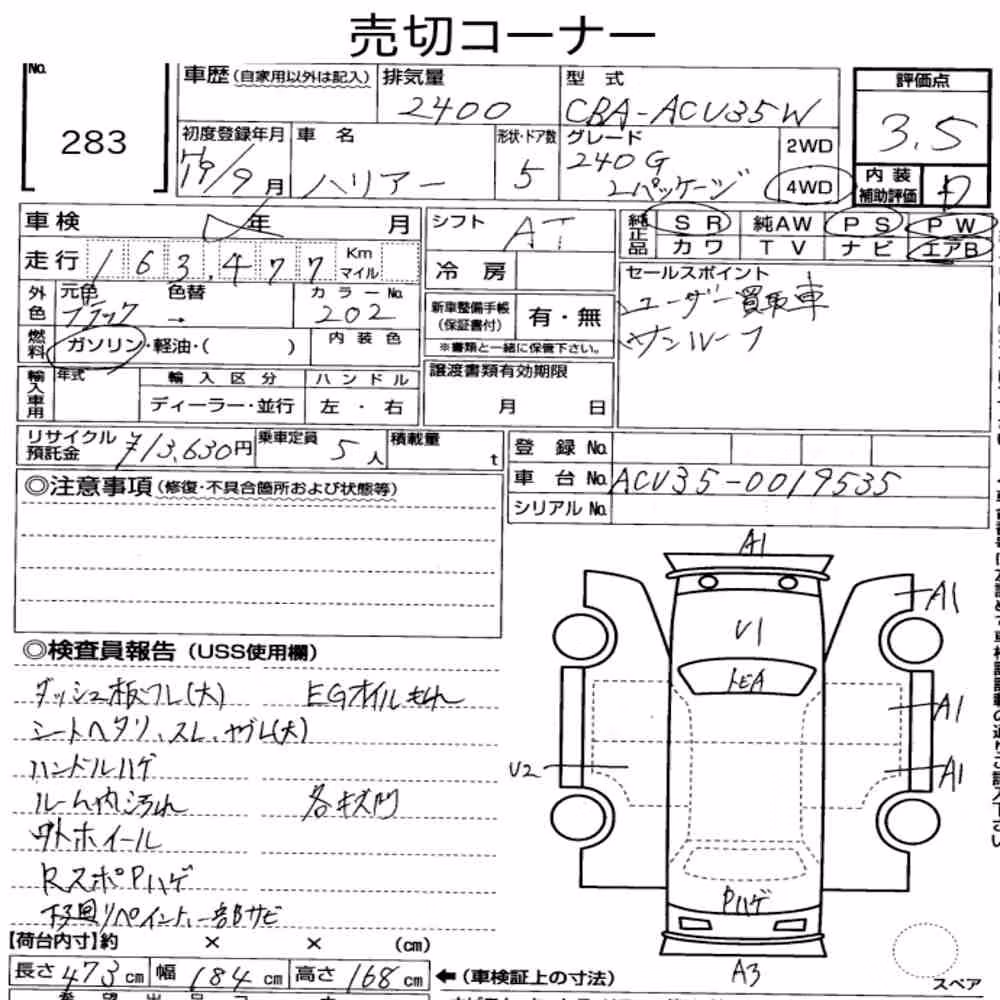 売切コーナー
No.
283
車歴(自家用以外は記入)
排気量
2400
型式
CBA-ACU35W
評価点
3.5
初度登録年月
19/9月
車名
ハリアー
形状・ドア数
5
グレード
240G
Lパッケージ
2WD
4WD
内装
補助評価
D
車検
年 月
走行
163,477
Km
マイル
シフト
AT
冷房
純正品
SR 純AW PS PW
カワ TV ナビ エアB
外色
元色 色替
ブラック →
カラーNo.
202
新車整備手帳
(保証書付)
有・無
※書類と一緒に保管下さい。
セールスポイント
ユーザー買取車
サンルーフ
燃料
ガソリン・軽油・( )
内装色
輸入車用
年式
輸入区分
ハンドル
ディーラー・並行
左・右
譲渡書類有効期限
月 日
リサイクル
預託金
¥13,630円
乗車定員
5人
積載量
t
登録No.
車台No.
ACU35-0019535
シリアルNo.
◎注意事項(修復・不具合箇所および状態等)
◎検査員報告(USS使用欄)
ダッシュ板ズレ(大) EGオイルもれ
シートヘタリ、スレ、ヤブレ(大)
ハンドルハゲ
ルーム内汚れ 各キズ凹
ワトホイール
Rスポ Pハゲ
下廻リペイント、一部サビ
A1
A1
U1
トビA
A1
U2
A1
Pハゲ
A3
スペア
【荷台内寸】約 × × (cm)
長さ473cm 幅184cm 高さ168cm
←(車検証上の寸法)